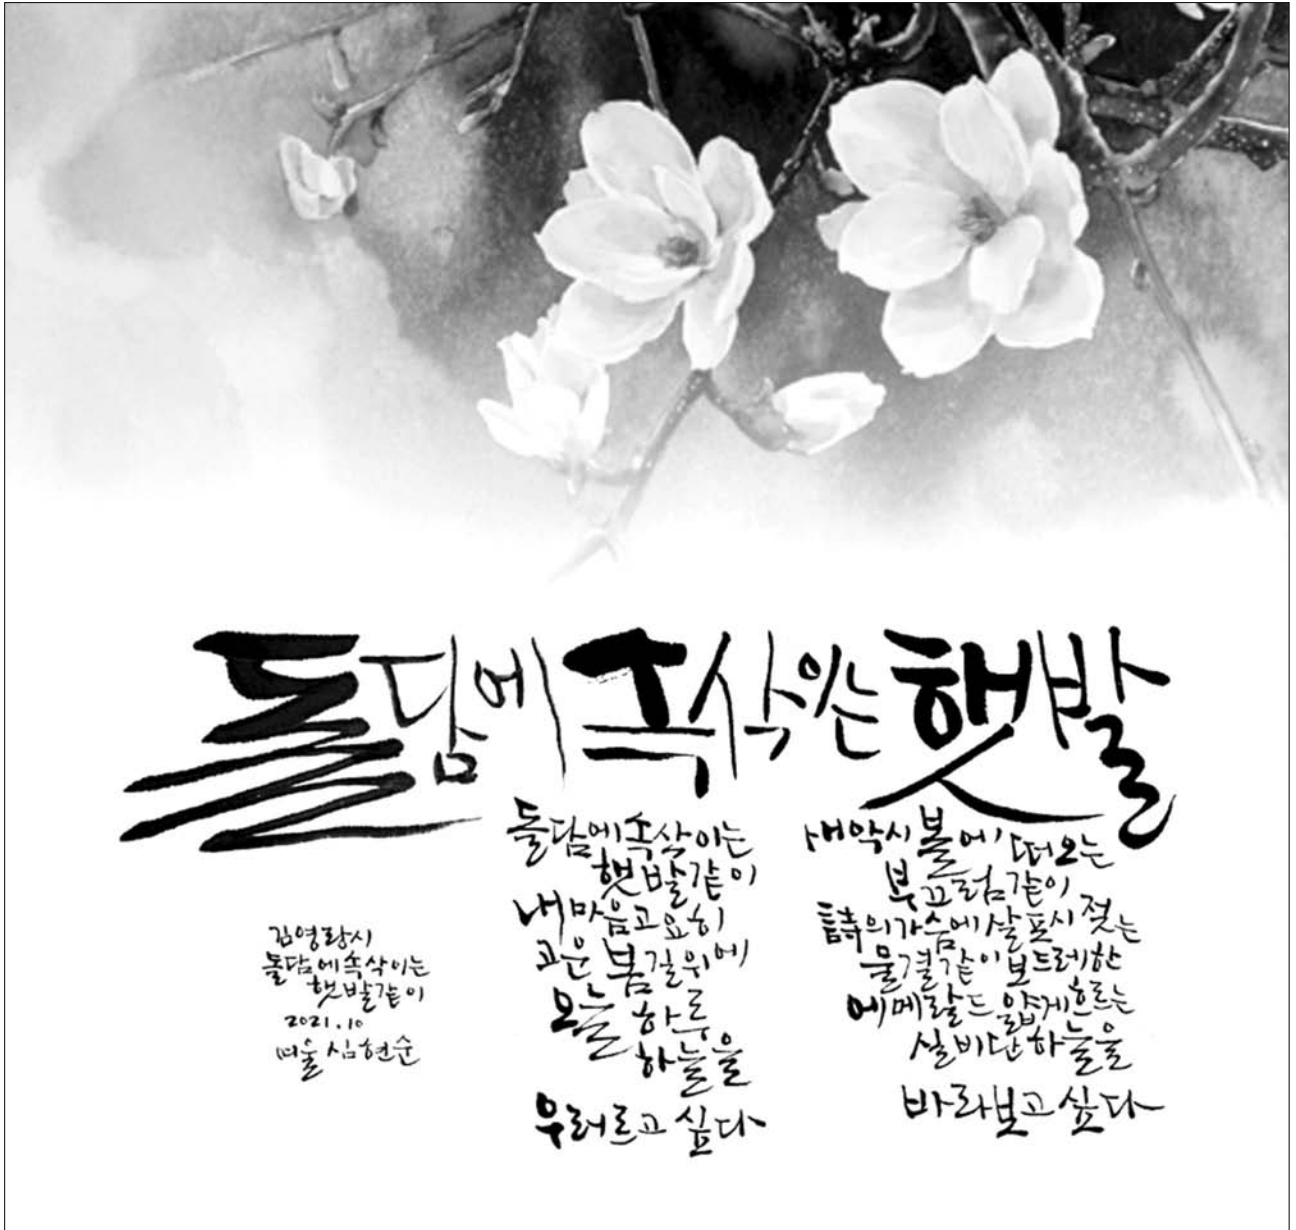 돌담에 속삭이는 햇발
돌담에 속삭이는
햇발같이
내 마음 고요히
고운 봄길 위에
오늘 하루
하늘을
우러르고 싶다
새악시 볼에 떠오는
부끄럼같이
詩의 가슴에 살포시 젖는
물결같이 보드레한
에메랄드 얇게 흐르는
실비단 하늘을
바라보고 싶다
김영랑시
돌담에 속삭이는
햇발같이
2021.10
심현순